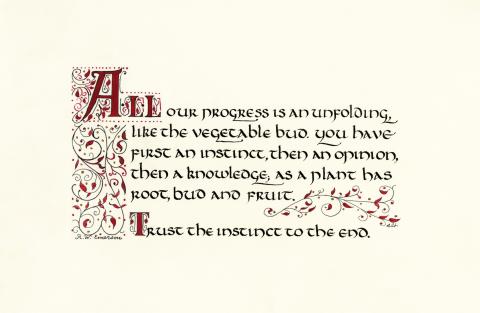 All our progress is an unfolding,
like the vegetable bud. you have
first an instinct, then an opinion,
then a knowledge, as a plant has
root, bud and fruit.
Trust the instinct to the end.
R.W. Emerson